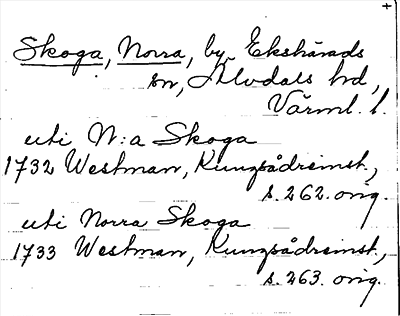 Skoga, Norra, by, Ekshärads
sn, Älvdals hd,
Värml. l.
uti N:a Skoga
1732 Westman, Kungsådreinst.,
s. 262. orig.
uti Norra Skoga
1733 Westman, Kungsådreinst.,
s. 263. orig.